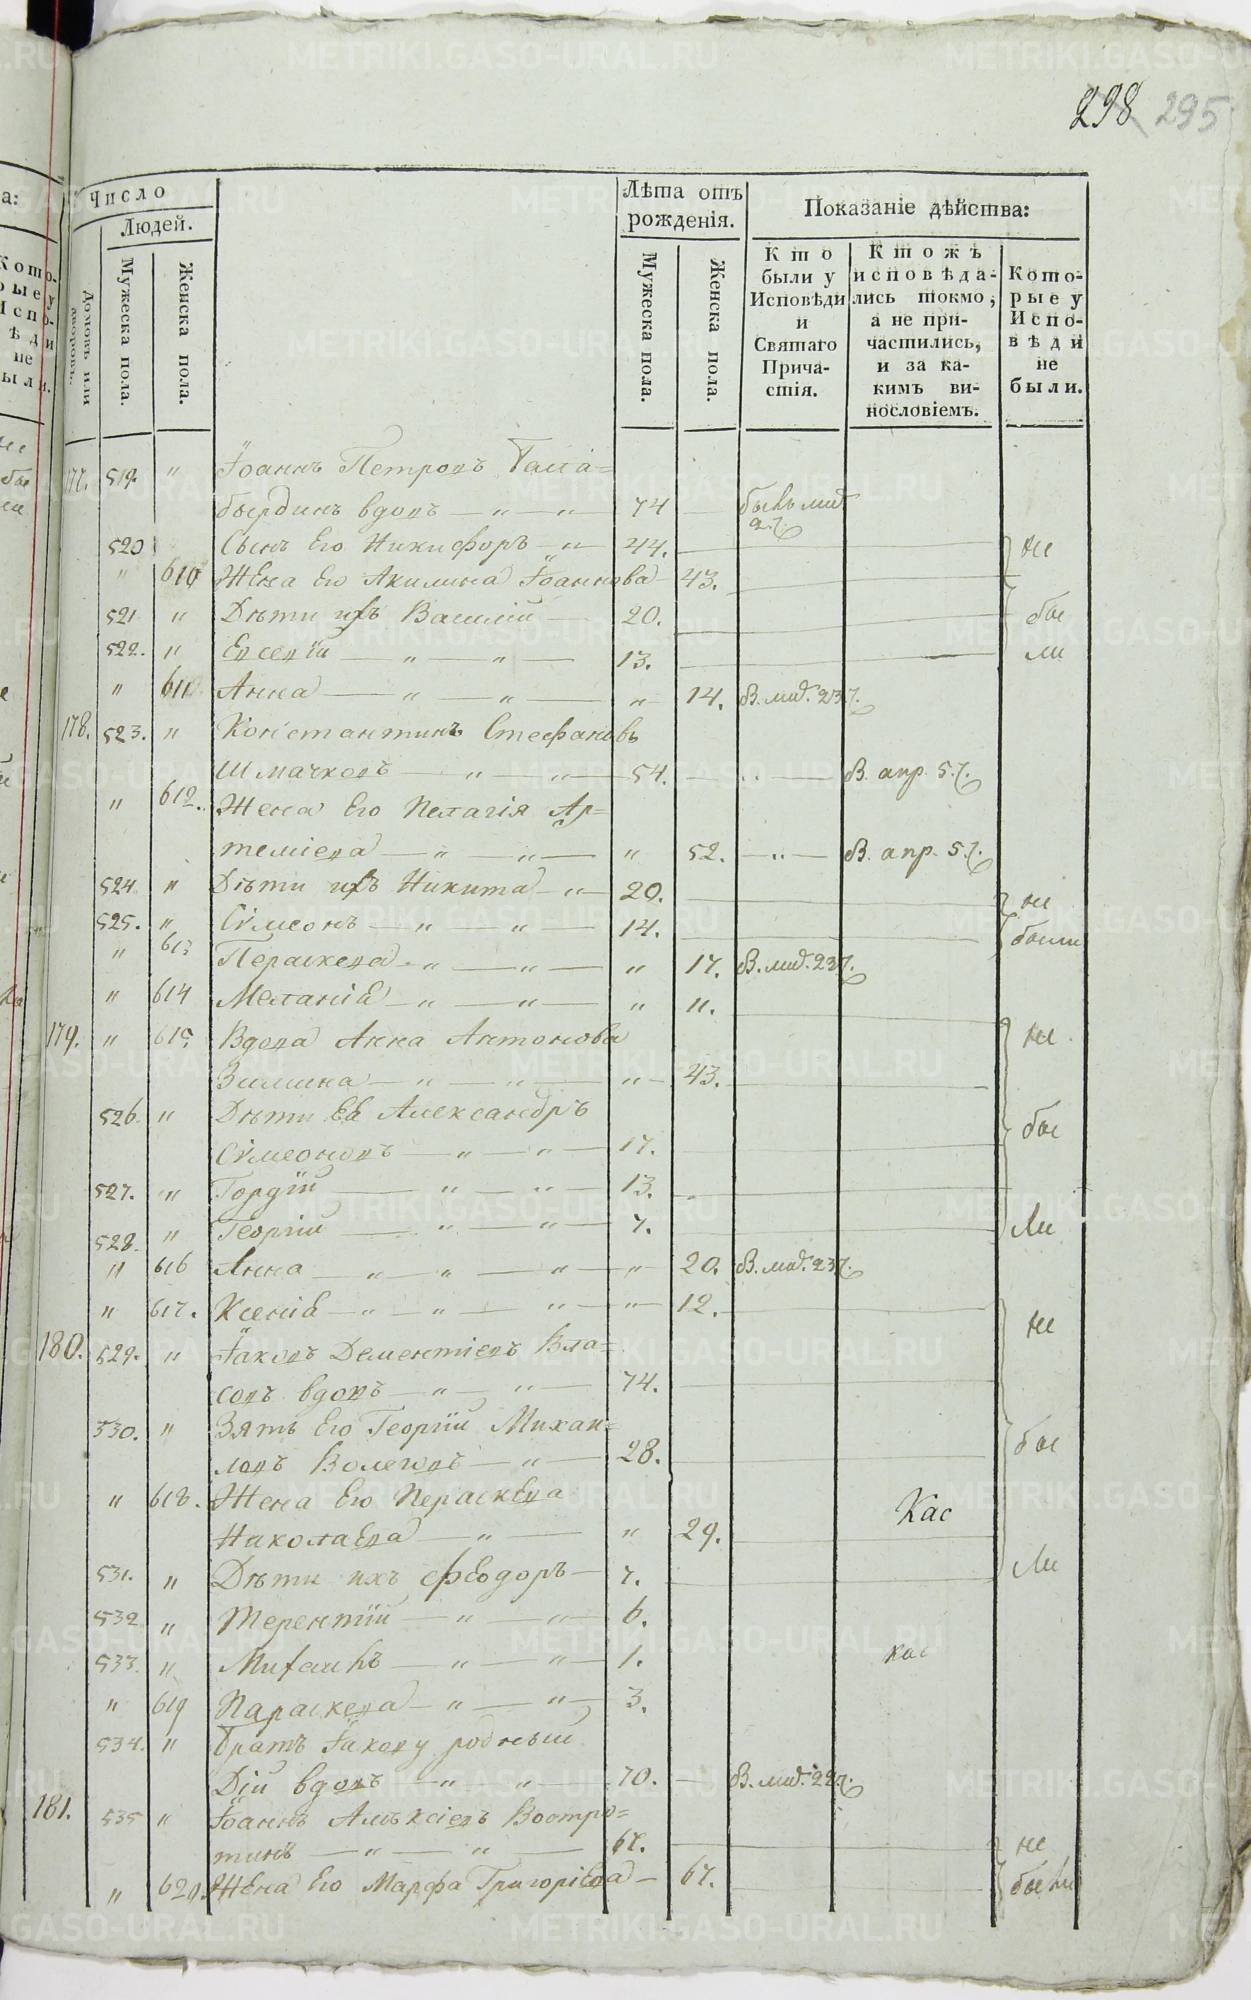 298 295
Число
Людей.
Домовъ или дворовъ.
Мужеска пола.
Женска пола.
Лѣта отъ рожденія.
Мужеска пола.
Женска пола.
Показаніе дѣйства:
Кто были у Исповѣди и Святаго Причастія.
Ктожъ исповѣдались токмо, а не причастились, и за какимъ винословіемъ.
Которые у Исповѣди не были.
177. 519. " Іоаннъ Петровъ
вдовъ — " — " — 74 —
520 Сынъ Его Никифоръ — " — 44. — не
" 610 Жена Его Акилина Іоаннова — 43.
521 " Дѣти ихъ Василій — 20. — бы
522. " Евсевій — " — " — 13. — ли
" 611 Анна — " — " — " — 14.
178. 523. " Константинъ Стефановъ
Шмачковъ — " — " — 54. — В. апр. 5.
" 612. Жена Его Пелагія Ар=
теміева — " — " — " 52. — " — В. апр. 5.
524. " Дѣти ихъ Никита — " — 20. — не
525. " Сѵмеонъ — " — " — 14. — были
" 613 Параскева — " — " — " 17.
" 614 Меланія — " — " — " 11.
179. " 615. Вдова Анна Антонова не
Зимина — " — " — " — 43.
526. " Дѣти Ея Александръ бы
Сѵмеоновъ — " — " — 17.
527. " Гордій — " — " — 13.
528. " Георгій — " — " — 7. — ли
" 616 Анна — " — " — " — " — 20.
" 617. Ксенія — " — " — " — " — 12.
180. 529. " Іаковъ Дементіевъ Вла= не
совъ вдовъ — " — " — 74.
530. " Зять Его Георгій Михаи=
ловъ — " — 28. — бы
" 618. Жена Его Параскева
Николаева — " — " 29. Кас
531. " Дѣти ихъ Феодоръ — 7. — ли
532 " Терентій — " — " — 6.
533. " Михаилъ — " — " — 1. кас
" 619 Параскева — " — " — 3.
534. " Братъ Іакову родный
Дій вдовъ — " — " — 70. —
181. 535 " Іоаннъ Алексіевъ Востро=
тинъ — " — " — 67. — не
" 620. Жена Его Марфа Григоріева — 67. были
METRIKI.GASO-URAL.RU